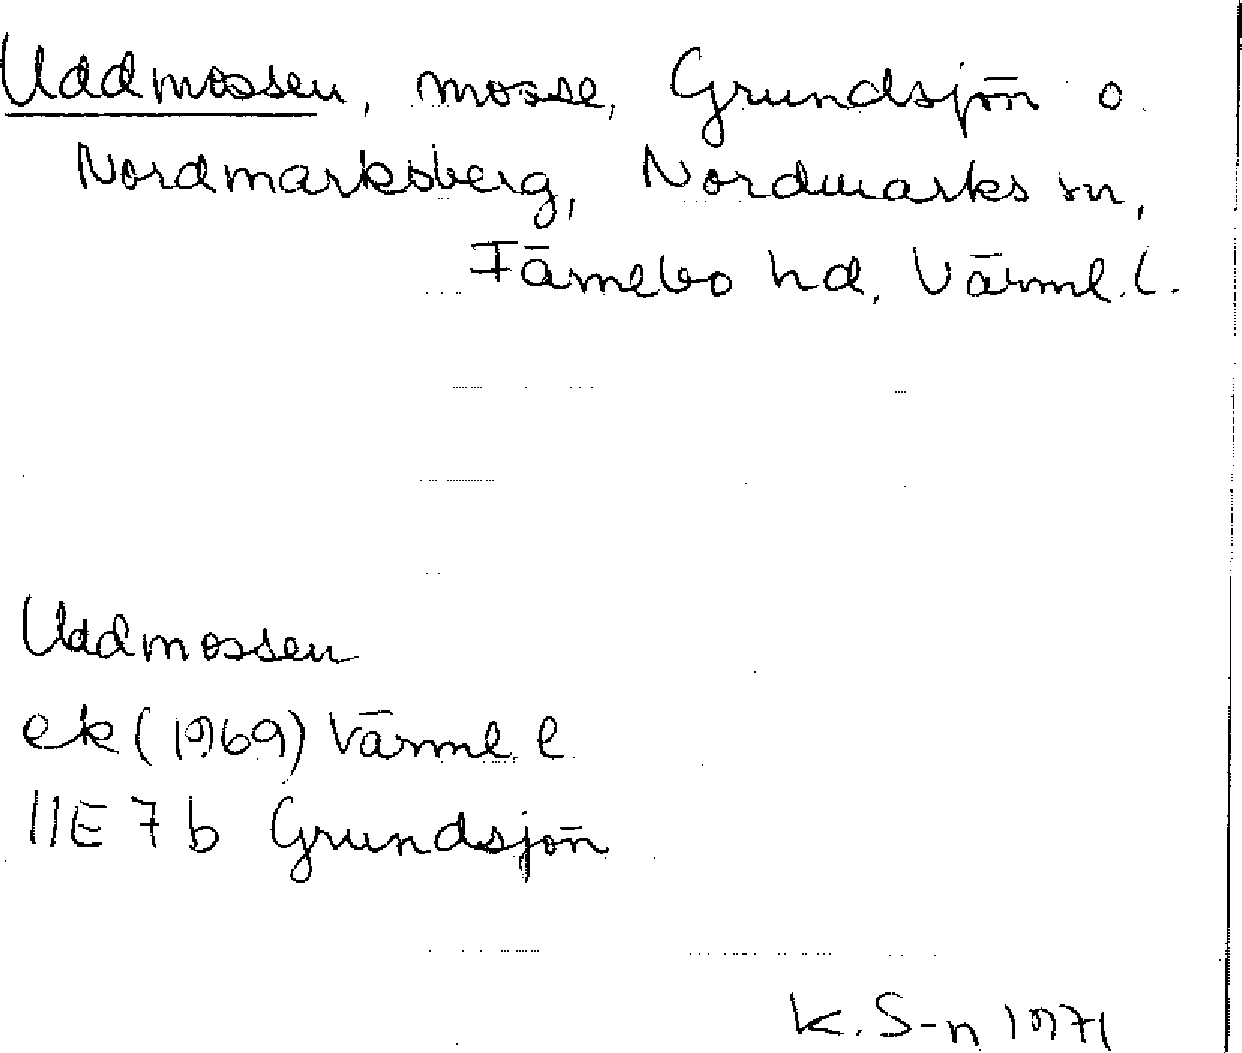 Uddmossen, mosse, Grundsjön o.
Nordmarksberg, Nordmarks sn,
Färnebo hd, Värml. l.
Uddmossen
ek (1969) Värml. l
11E 7 b Grundsjön
K. S-n 1971